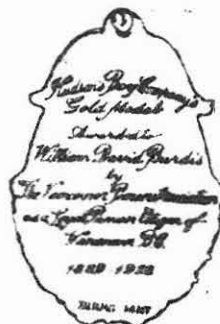 Hudson's Bay Company's
Gold Medal
Awarded to
William David Burdis
by
The Vancouver Pioneers Association
as a Loyal Pioneer Citizen of
Vancouver B.C.